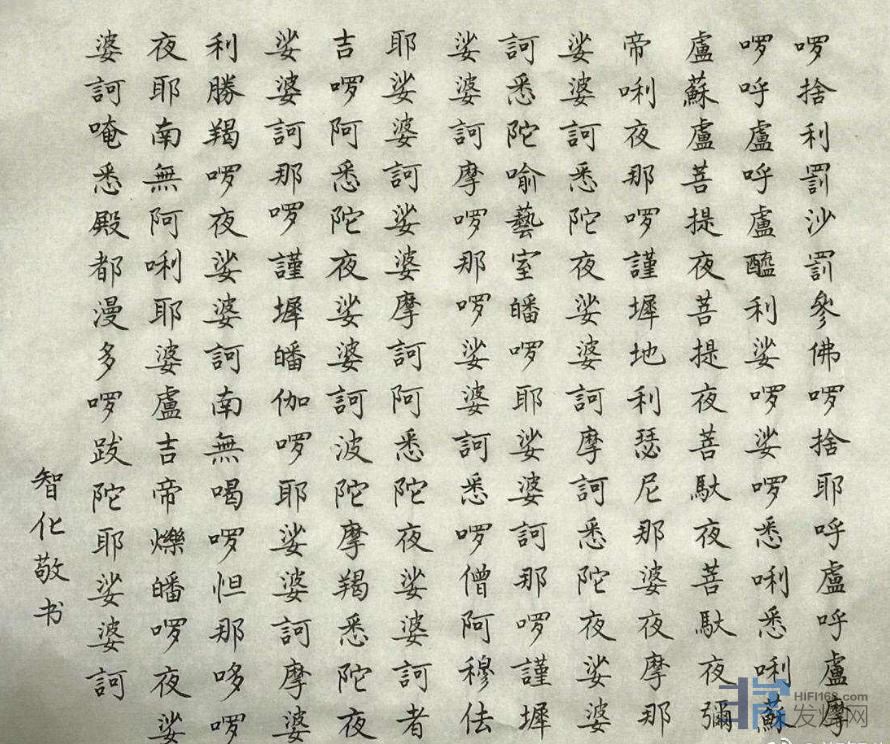 啰捨利罰沙罰參佛啰捨耶呼盧呼盧摩
啰呼盧呼盧醯利娑啰娑啰悉唎悉唎蘇
盧蘇盧菩提夜菩提夜菩馱夜菩馱夜彌
帝唎夜那啰謹墀地利瑟尼那婆夜摩那
娑婆訶悉陀夜娑婆訶摩訶悉陀夜娑婆
訶悉陀喻藝室皤啰耶娑婆訶那啰謹墀
娑婆訶摩啰那啰娑婆訶悉啰僧阿穆佉
耶娑婆訶娑婆摩訶阿悉陀夜娑婆訶者
吉啰阿悉陀夜娑婆訶波陀摩羯悉陀夜
娑婆訶那啰謹墀皤伽啰耶娑婆訶摩婆
利勝羯啰夜娑婆訶南無喝啰怛那哆啰
夜耶南無阿唎耶婆盧吉帝爍皤啰夜娑
婆訶唵悉殿都漫多啰跋陀耶娑婆訶
智化敬书
HIFI168.com
发烧网